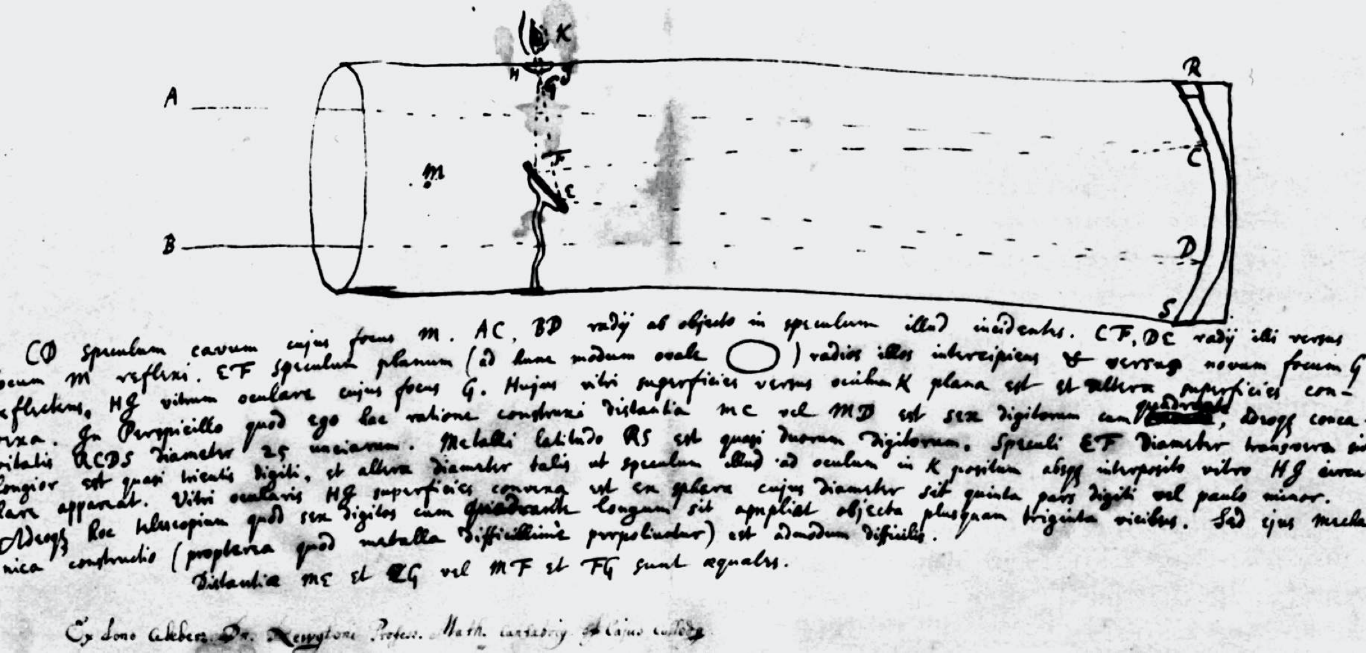 K
H
G
R
A
F
C
M
E
B
D
S
CD speculum cavum cujus focus M. AC, BD radij ab objecto in speculum illud incidentes. CF, DE radij illi versus
focum M reflexi. EF speculum planum (ad hunc modum ovale ) radios illos intercipiens & versus novum focum G
reflectens. HJ vitrum oculare cujus focus G. Hujus vitri superficies versus oculum K plana est et altera superficies con-
vexa. In Perspicillo quod ego hac ratione construxi distantia MC vel MD est sex digitorum cum quadrante, Adeoq conca-
vitatis RCDS diameter 25 unciarum. Metalli latitudo RS est quasi duorum digitorum. Speculi EF Diameter transversa
longior est quasi trientis digiti, et altera diameter talis ut speculum illud ad oculum in K positum absq interposito vitro HJ circu-
lare appareat. Vitri ocularis HJ superficies convexa est ex sphæra cujus diameter sit quinta pars digiti vel paulo minor.
Adeoq hoc telescopium quod sex digitos cum quadrante longum sit ampliat objecta plusquam triginta vicibus. Sed ejus mecha-
nica constructio (propterea quod metalla difficillime perpoliuntur) est admodum difficilis.
Distantiæ ME et EG vel MF et FG sunt æquales.
Ex dono Dn. Newtoni Profess. Math.